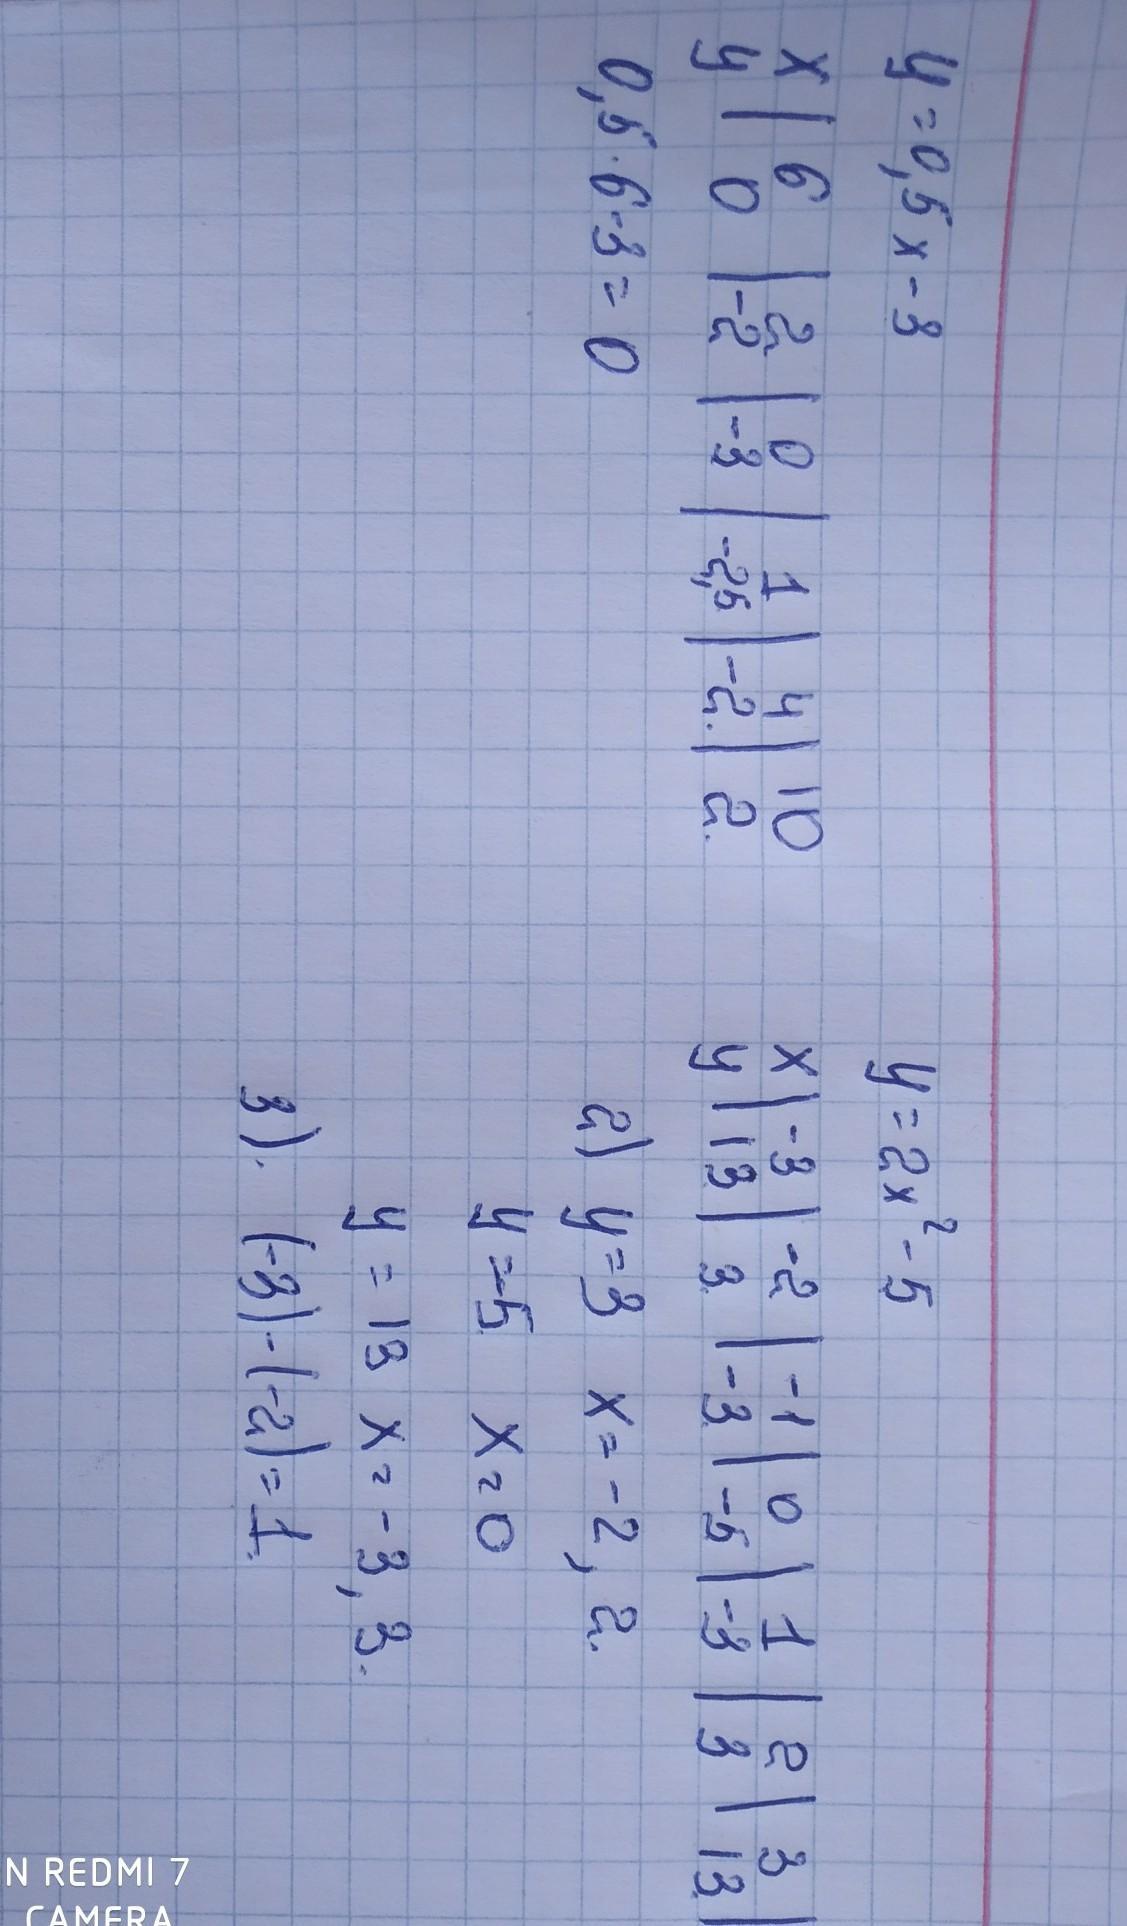 y = 0,5x - 3
x | 6 | 2 | 0 | 1 | 4 | 10
y | 0 | -2 | -3 | -2,5 | -2. | 2.
0,5 · 6 - 3 = 0
y = 2x² - 5
x | -3 | -2 | -1 | 0 | 1 | 2 | 3 |
y | 13 | 3 | -3 | -5 | -3 | 3 | 13 |
2) y = 3 x = -2, 2.
y = -5 x = 0
y = 13 x = -3, 3.
3). (-3) - (-2) = 1.
N REDMI 7
CAMERA